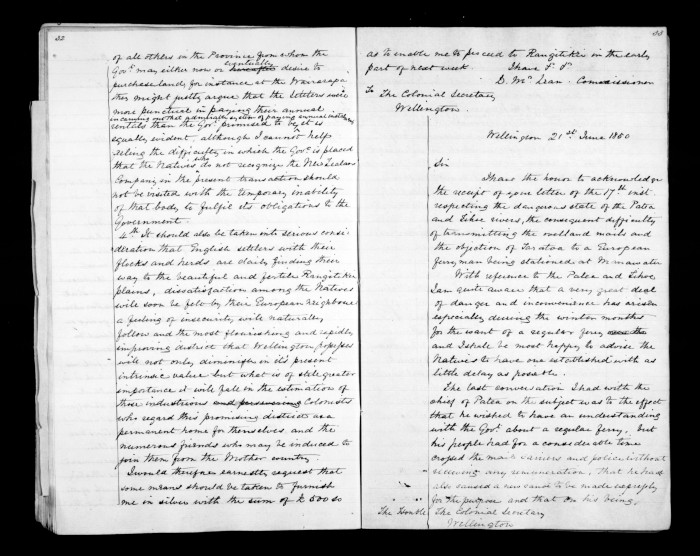 32
of all others in the Province from whom the
eventually
Govt may either now or hereafter desire to
purchase land, for instance at the Wararapa
they might justly argue that the settlers were
more punctual in paying their annual
in carrying out that admirable system of paying annual instalments
rentals than the Govt promised to be, it is
equally evident, although I cannot help
feeling the difficulty in which the Govt is placed
that the Natives who do not recognize the New Zealand
Company in the present transaction should
not be visited with the temporary inability
of that body to fulfil its obligations to the
Government.
4th It should also be taken into serious consi-
deration that English settlers with their
flocks and herds are daily finding their
way to the beautiful and fertile Rangitikei
plains, dissatisfaction among the Natives
will soon be felt by their European neighbours
a feeling of insecurity will naturally
follow and the most flourishing and rapidly
improving district that Wellington possesses
will not only diminish in its present
intrinsic value but what is of still greater
importance it will fall in the estimation of
those industrious and persevering Colonists
who regard this promising district as a
permanent home for themselves and the
numerous friends who may be induced to
join them from the Mother country.
I would therefore earnestly request that
some means should be taken to furnish
me in silver with the sum of £500 so
33
as to enable me to proceed to Rangitikei in the early
part of next week. I have &c &c
D. McLean. Commissioner
To The Colonial Secretary
Wellington.
Wellington 21st June 1850
Sir
I have the honor to acknowledge
the receipt of your letter of the 17th inst.
respecting the dangerous state of the Patea
and rivers, the consequent difficulty
of transmitting the overland mails and
the objection of Taratoa to a European
ferryman being stationed at Manawatu
With reference to the Patea and
I am quite aware that a very great deal
of danger and inconvenience has arisen
especially during the winter months
for the want of a regular ferry
and I shall be most happy to advise the
Natives to have one established with as
little delay as possible.
The last conversation I had with the
chief of Patea on the subject was to the effect
that he wished to have an understanding
with the Govt about a regular ferry, but
his people had for a considerable time
crossed the mail carriers and police without
receiving any remuneration, that he had
also caused a new canoe to be made expressly
for the purpose and that on his being,
The Honble The Colonial Secretary
Wellington